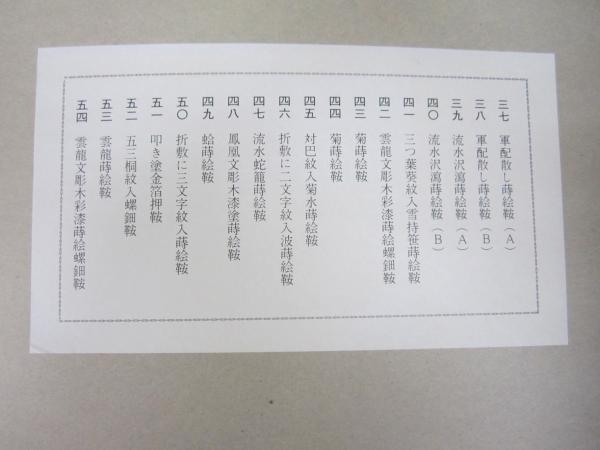 三七 軍配散し蒔絵鞍（A）
三八 軍配散し蒔絵鞍（B）
三九 流水沢瀉蒔絵鞍（A）
四〇 流水沢瀉蒔絵鞍（B）
四一 三つ葉葵紋入雪持笹蒔絵鞍
四二 雲龍文彫木彩漆蒔絵螺鈿鞍
四三 菊蒔絵鞍
四四 菊蒔絵鞍
四五 対巴紋入菊水蒔絵鞍
四六 折敷に二文字紋入波蒔絵鞍
四七 流水蛇籠蒔絵鞍
四八 鳳凰文彫木漆塗蒔絵鞍
四九 蛤蒔絵鞍
五〇 折敷に三文字紋入蒔絵鞍
五一 叩き塗金箔押鞍
五二 五三桐紋入螺鈿鞍
五三 雲龍蒔絵鞍
五四 雲龍文彫木彩漆蒔絵螺鈿鞍